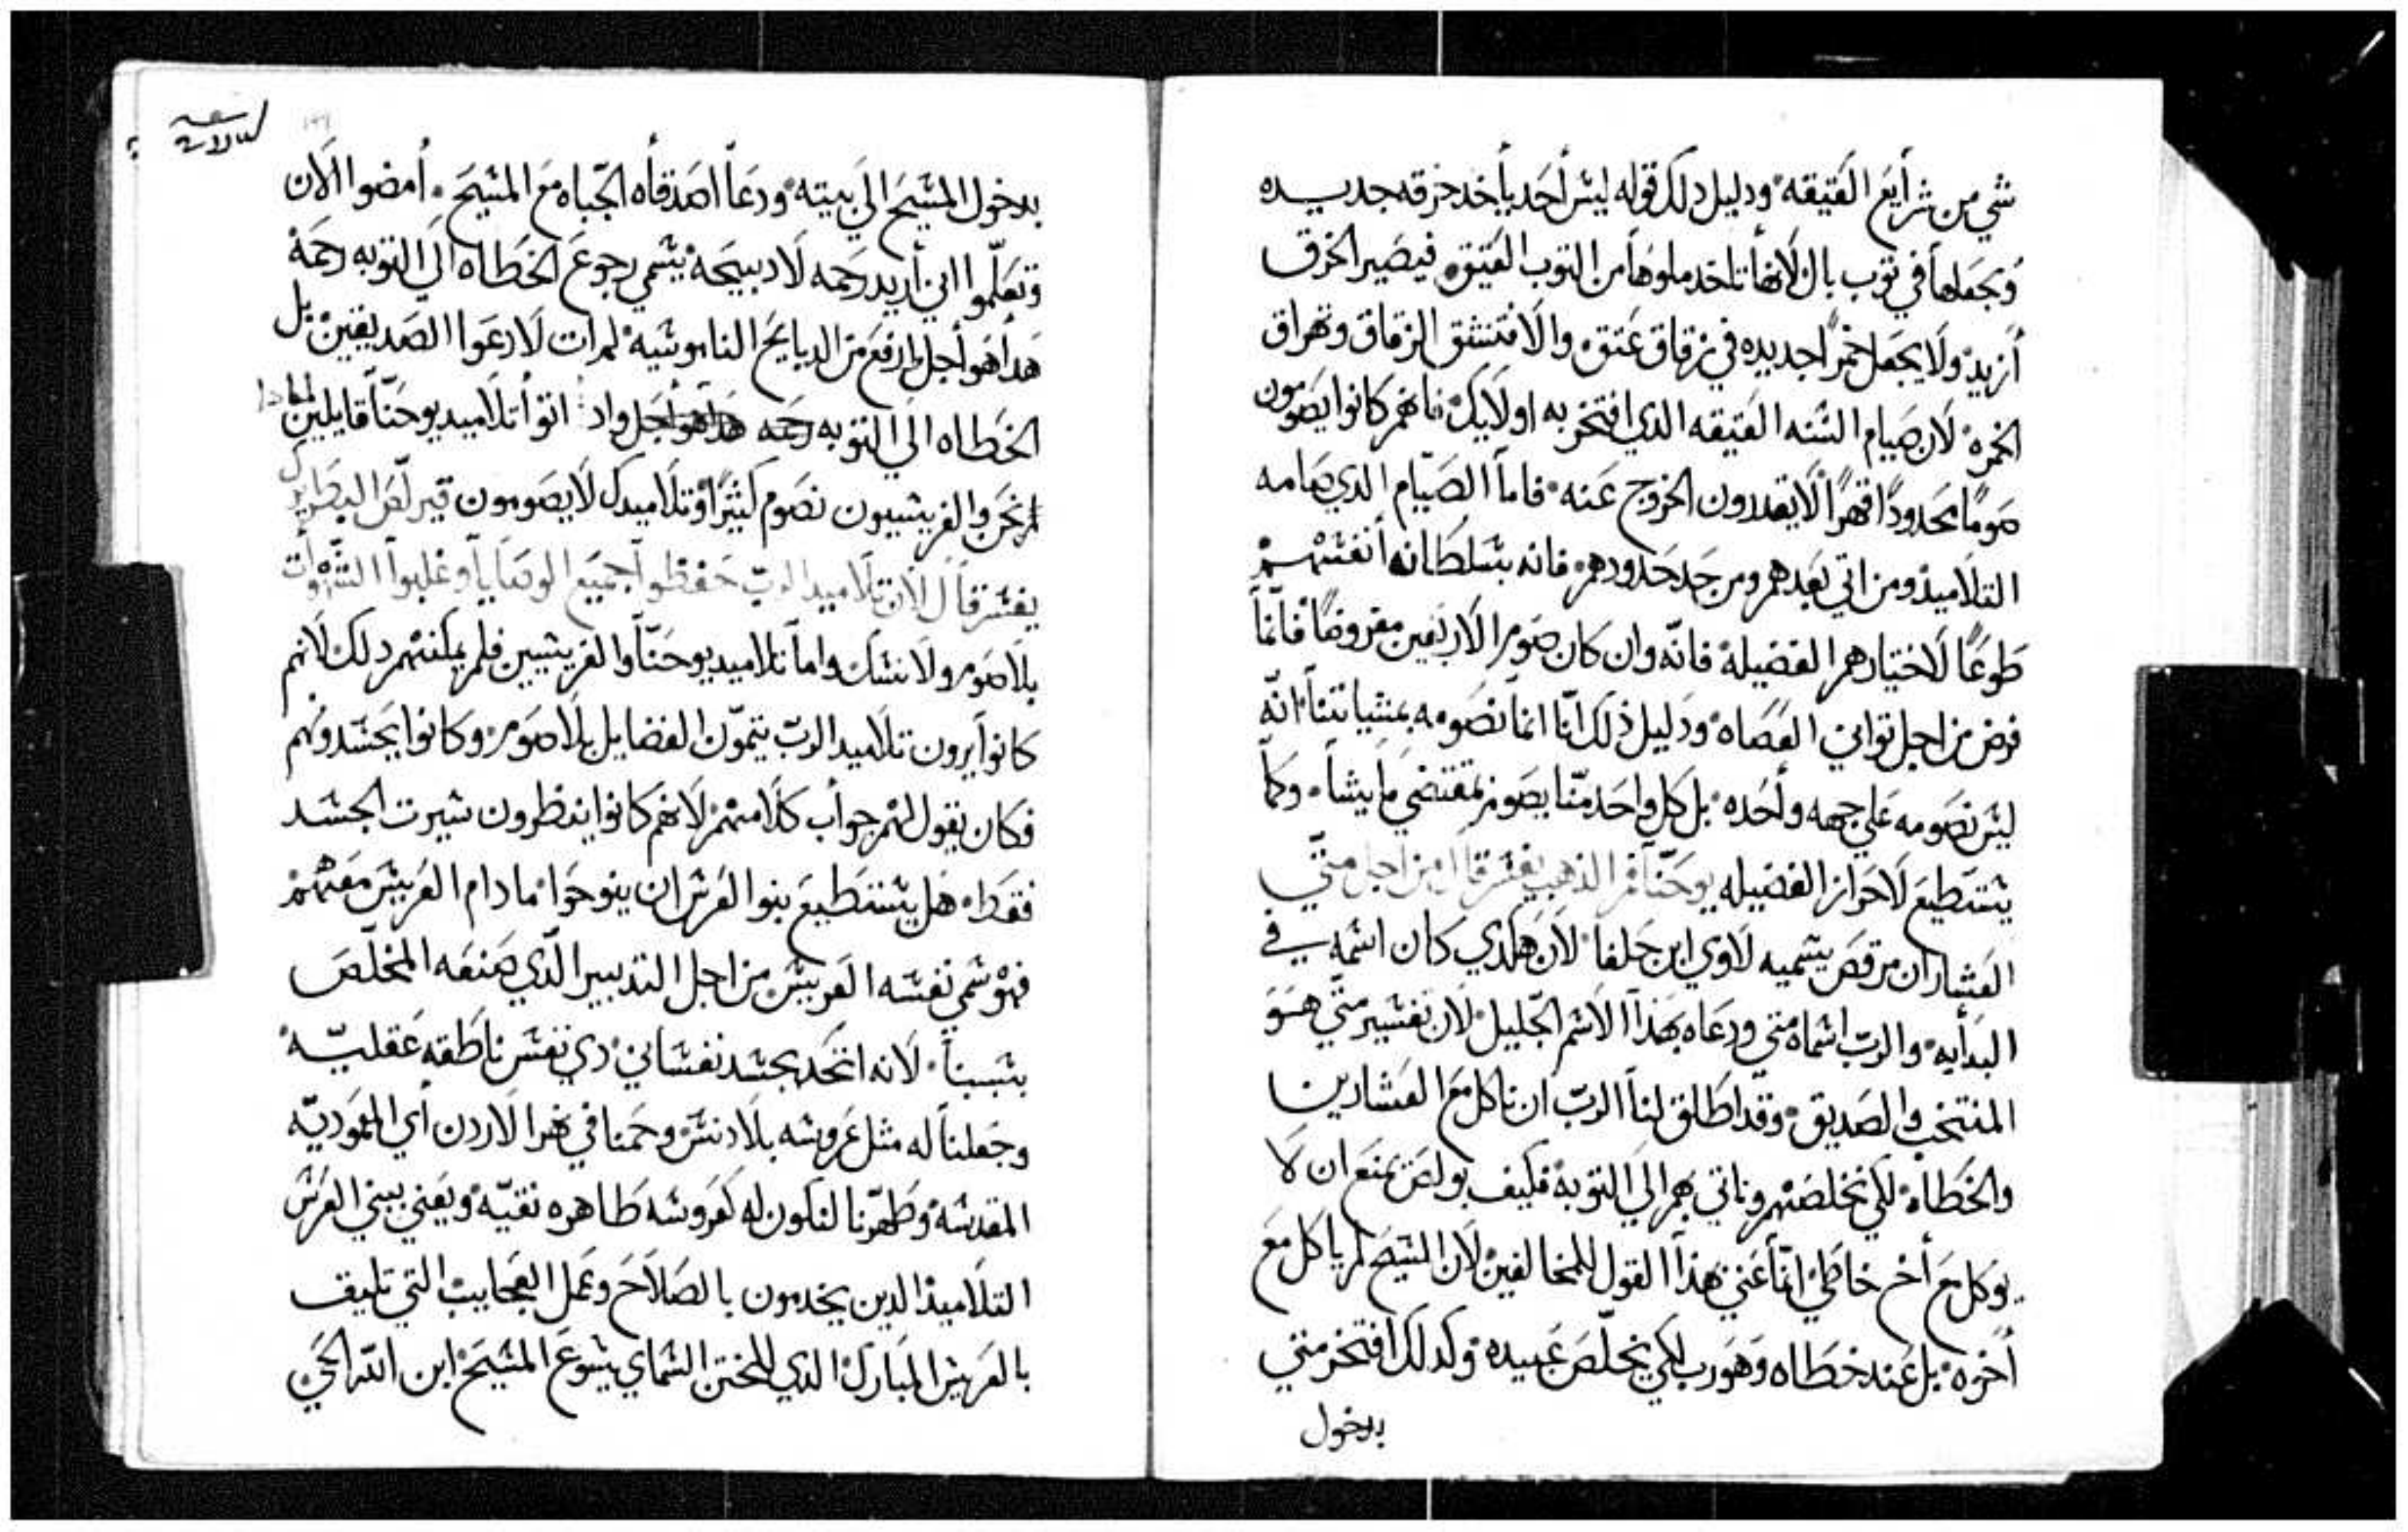 شي من شرأيع العتيقه ودليل دلك قوله ليس أحد يأخد خرقه جديده
ويجعلها في توب بال لانها تاخد ملوها من التوب العتيق فيصير الخرق
أزيد ولا يجعل خمراً جديده في زقاق عتق والا فتنشق الزقاق وتهراق
الخمره لان صيام السنه العتيقه الدي افتخر به اولايك فانهم كانوا يصومون
صوماً محدوداً قهراً لا يقدرون الخروج عنه فاما الصيام الدي صامه
التلاميذ ومن اتي بعدهم ومن حد حدودهم فانه بسلطانه أنفسهم
طوعاً لاختيارهم الفضيله فانه وان كان صوم الاربعين مفروضاً فانما
فرض من اجل تواني العصاه ودليل ذلك انا انما نصومه بمشياتنا انه
ليس نصومه علي جهه وأحده بل كل واحد منا يصوم بمقتضي ما يشا وكما
يستطيع لاحراز الفضيله يوحنا فم الذهب يفسر قال من اجل متي
العشار ان مرقص يسميه لاوي ابن حلفا لان هكدي كان اسمه في
البدأيه والرب اسماه متي ودعاه بهذا الاسم الجليل لان تفسير متي هو
المنتخب والصديق وقد اطلق لنا الرب ان ناكل مع العشارين
والخطاه لكي نخلصهم وناتي بهم الي التوبه فكيف بولص يمنع ان لا
يوكل مع أخ خاطي انما عني بهذا القول للمخالفين لان المسيح لم ياكل مع
أخوه بل عند خطاه وهو رب لكي يخلص عبيده وكدلك افتخر متي
بدخول
بدخول المسيح الي بيته ودعا اصدقاه الجباه مع المسيح أمضوا الان
وتعلموا اني أريد رحمه لا دبيحه يسمي رجوع الخطاه الي التوبه رحمه
هدا هو أجل وارفع من الدبايح الناموسيه لم ات لادعوا الصديقين بل
الخطاه الي التوبه اتوا تلاميد يوحنا قايلين لمادا
نحن والفريسيون نصوم كثيراً وتلاميدك لا يصومون قيرلص البطريرك
يفسر قال لان تلاميد الرب حفظوا جميع الوصايا وغلبوا الشهوات
بلا صوم ولا نسك واما تلاميد يوحنا والفريسيين فلم يمكنهم دلك لانهم
كانوا يرون تلاميد الرب يتمون الفضايل بلا صوم وكانوا يحسدونهم
فكان يقول لهم جواب كلامهم لانهم كانوا ينظرون سيرت الجسد
فقط هل يستطيع بنوا العرس ان ينوحوا ما دام العريس معهم
فهو سمي نفسه العريس من اجل التدبير الدي صنعه المخلص
بسببنا لانه اتحد بجسد نفساني دي نفس ناطقه عقليه
وجعلنا له مثل عروسه بلا دنس وحمنا في نهر الاردن أي المعموديه
المقدسه وطهرنا لنكون له كعروسه طاهره نقيه ويعني ببني العرس
التلاميذ الدين يخدمون بالصلاح وعمل العجايب التي تليق
بالعريس المبارك الدي للختن السماي يسوع المسيح ابن الله الحي